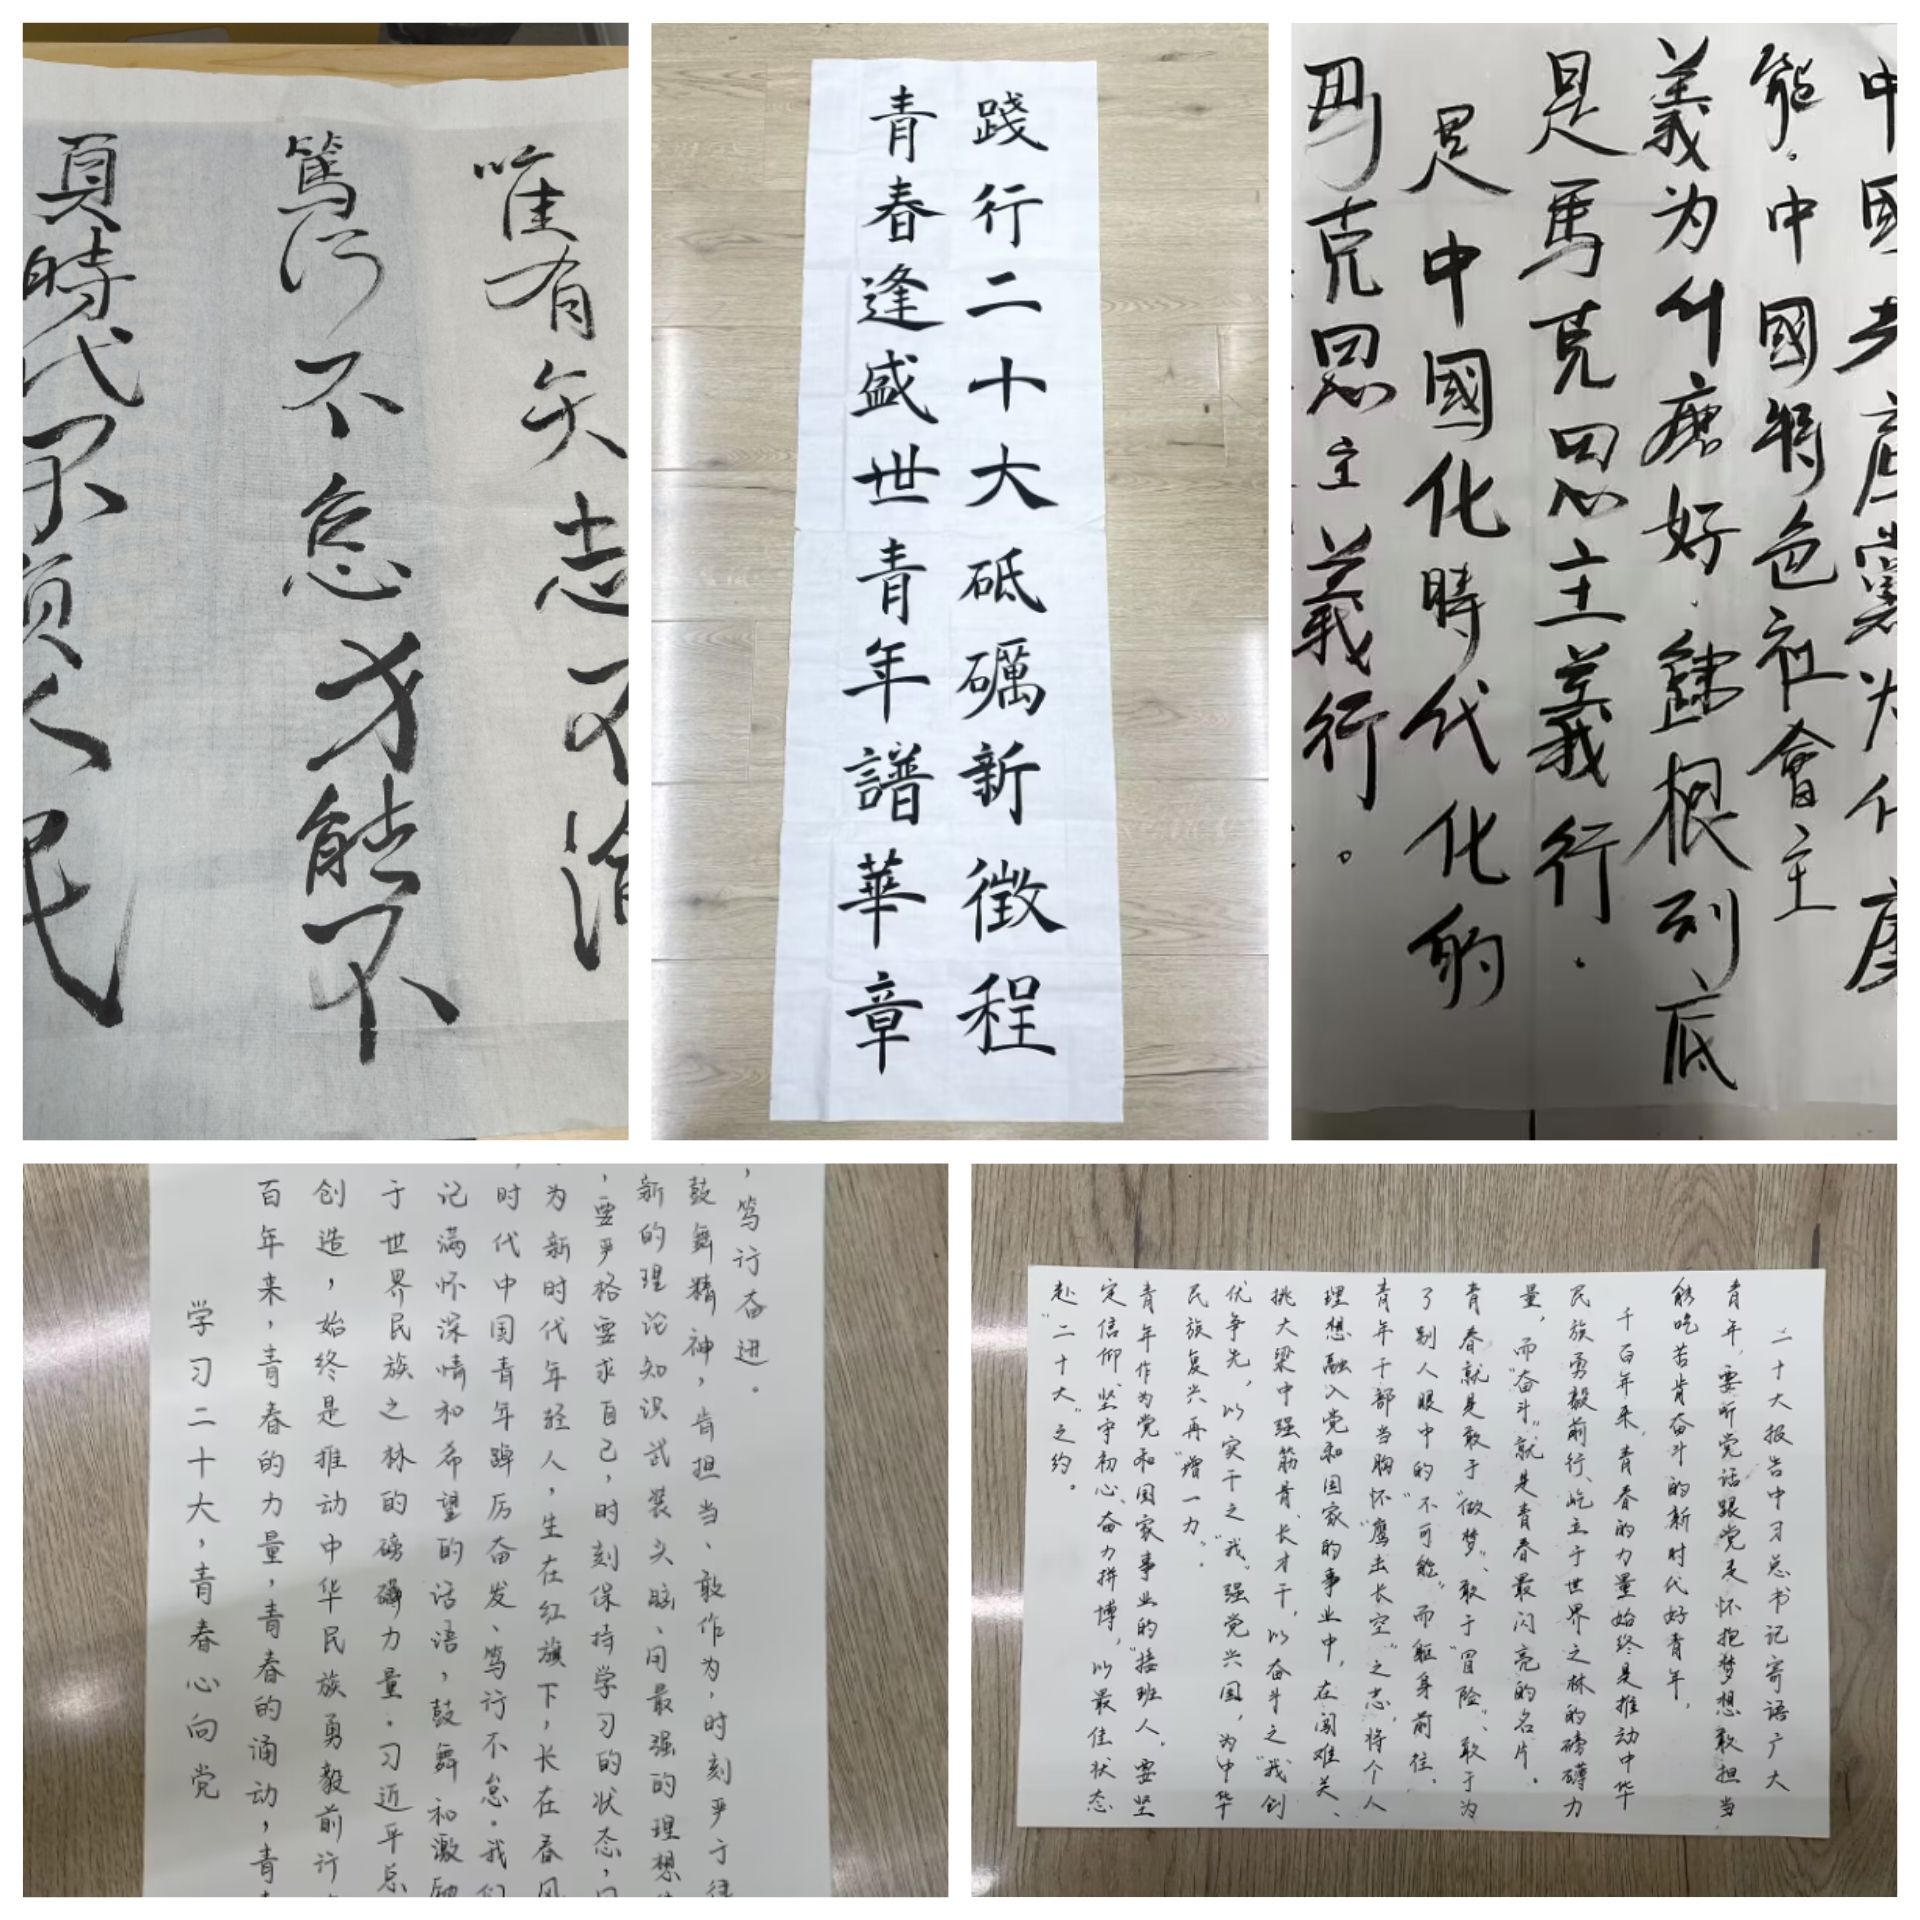 唯有矢志不渝
篤行不怠才能不
負時代不負人民
踐行二十大砥礪新徵程
青春逢盛世青年譜華章
中國共產黨为什麼
能。中國特色社會主
義为什麼好，歸根到底
是馬克思主義行，
是中國化時代化的
馬克思主義行。
学习二十大，青春心向党
百年来，青春的力量，青春的涌动，青
创造，始终是推动中华民族勇毅前行
于世界民族之林的磅礴力量。习近平总
记满怀深情和希望的话语，鼓舞和激励
时代中国青年踔厉奋发、笃行不怠。我们
为新时代年轻人，生在红旗下，长在春风
，要严格要求自己，时刻保持学习的状态，
新的理论知识武装头脑、用最强的理想
鼓舞精神，肯担当、敢作为，时刻严于
，笃行奋进。
二十大报告中习总书记寄语广大
青年，要听党话跟党走怀抱梦想敢担当
能吃苦肯奋斗的新时代好青年，
千百年来，青春的力量始终是推动中华
民族勇毅前行、屹立于世界之林的磅礴力
量，而“奋斗”就是青春最闪亮的名片。
青春就是敢于“做梦”、敢于“冒险”、敢于为
了别人眼中的“不可能”而驱身前往、
青年干部当胸怀“鹰击长空”之志，将个人
理想融入党和国家的事业中，在闯难关、
挑大梁中强筋骨、长才干，以奋斗之“我”创
优争先，以实干之“我”强党兴国，为中华
民族复兴再“增一力”。
青年作为党和国家事业的“接班人”，要坚
定信仰、坚守初心、奋力拼博，以最佳状态
赴“二十大”之约。